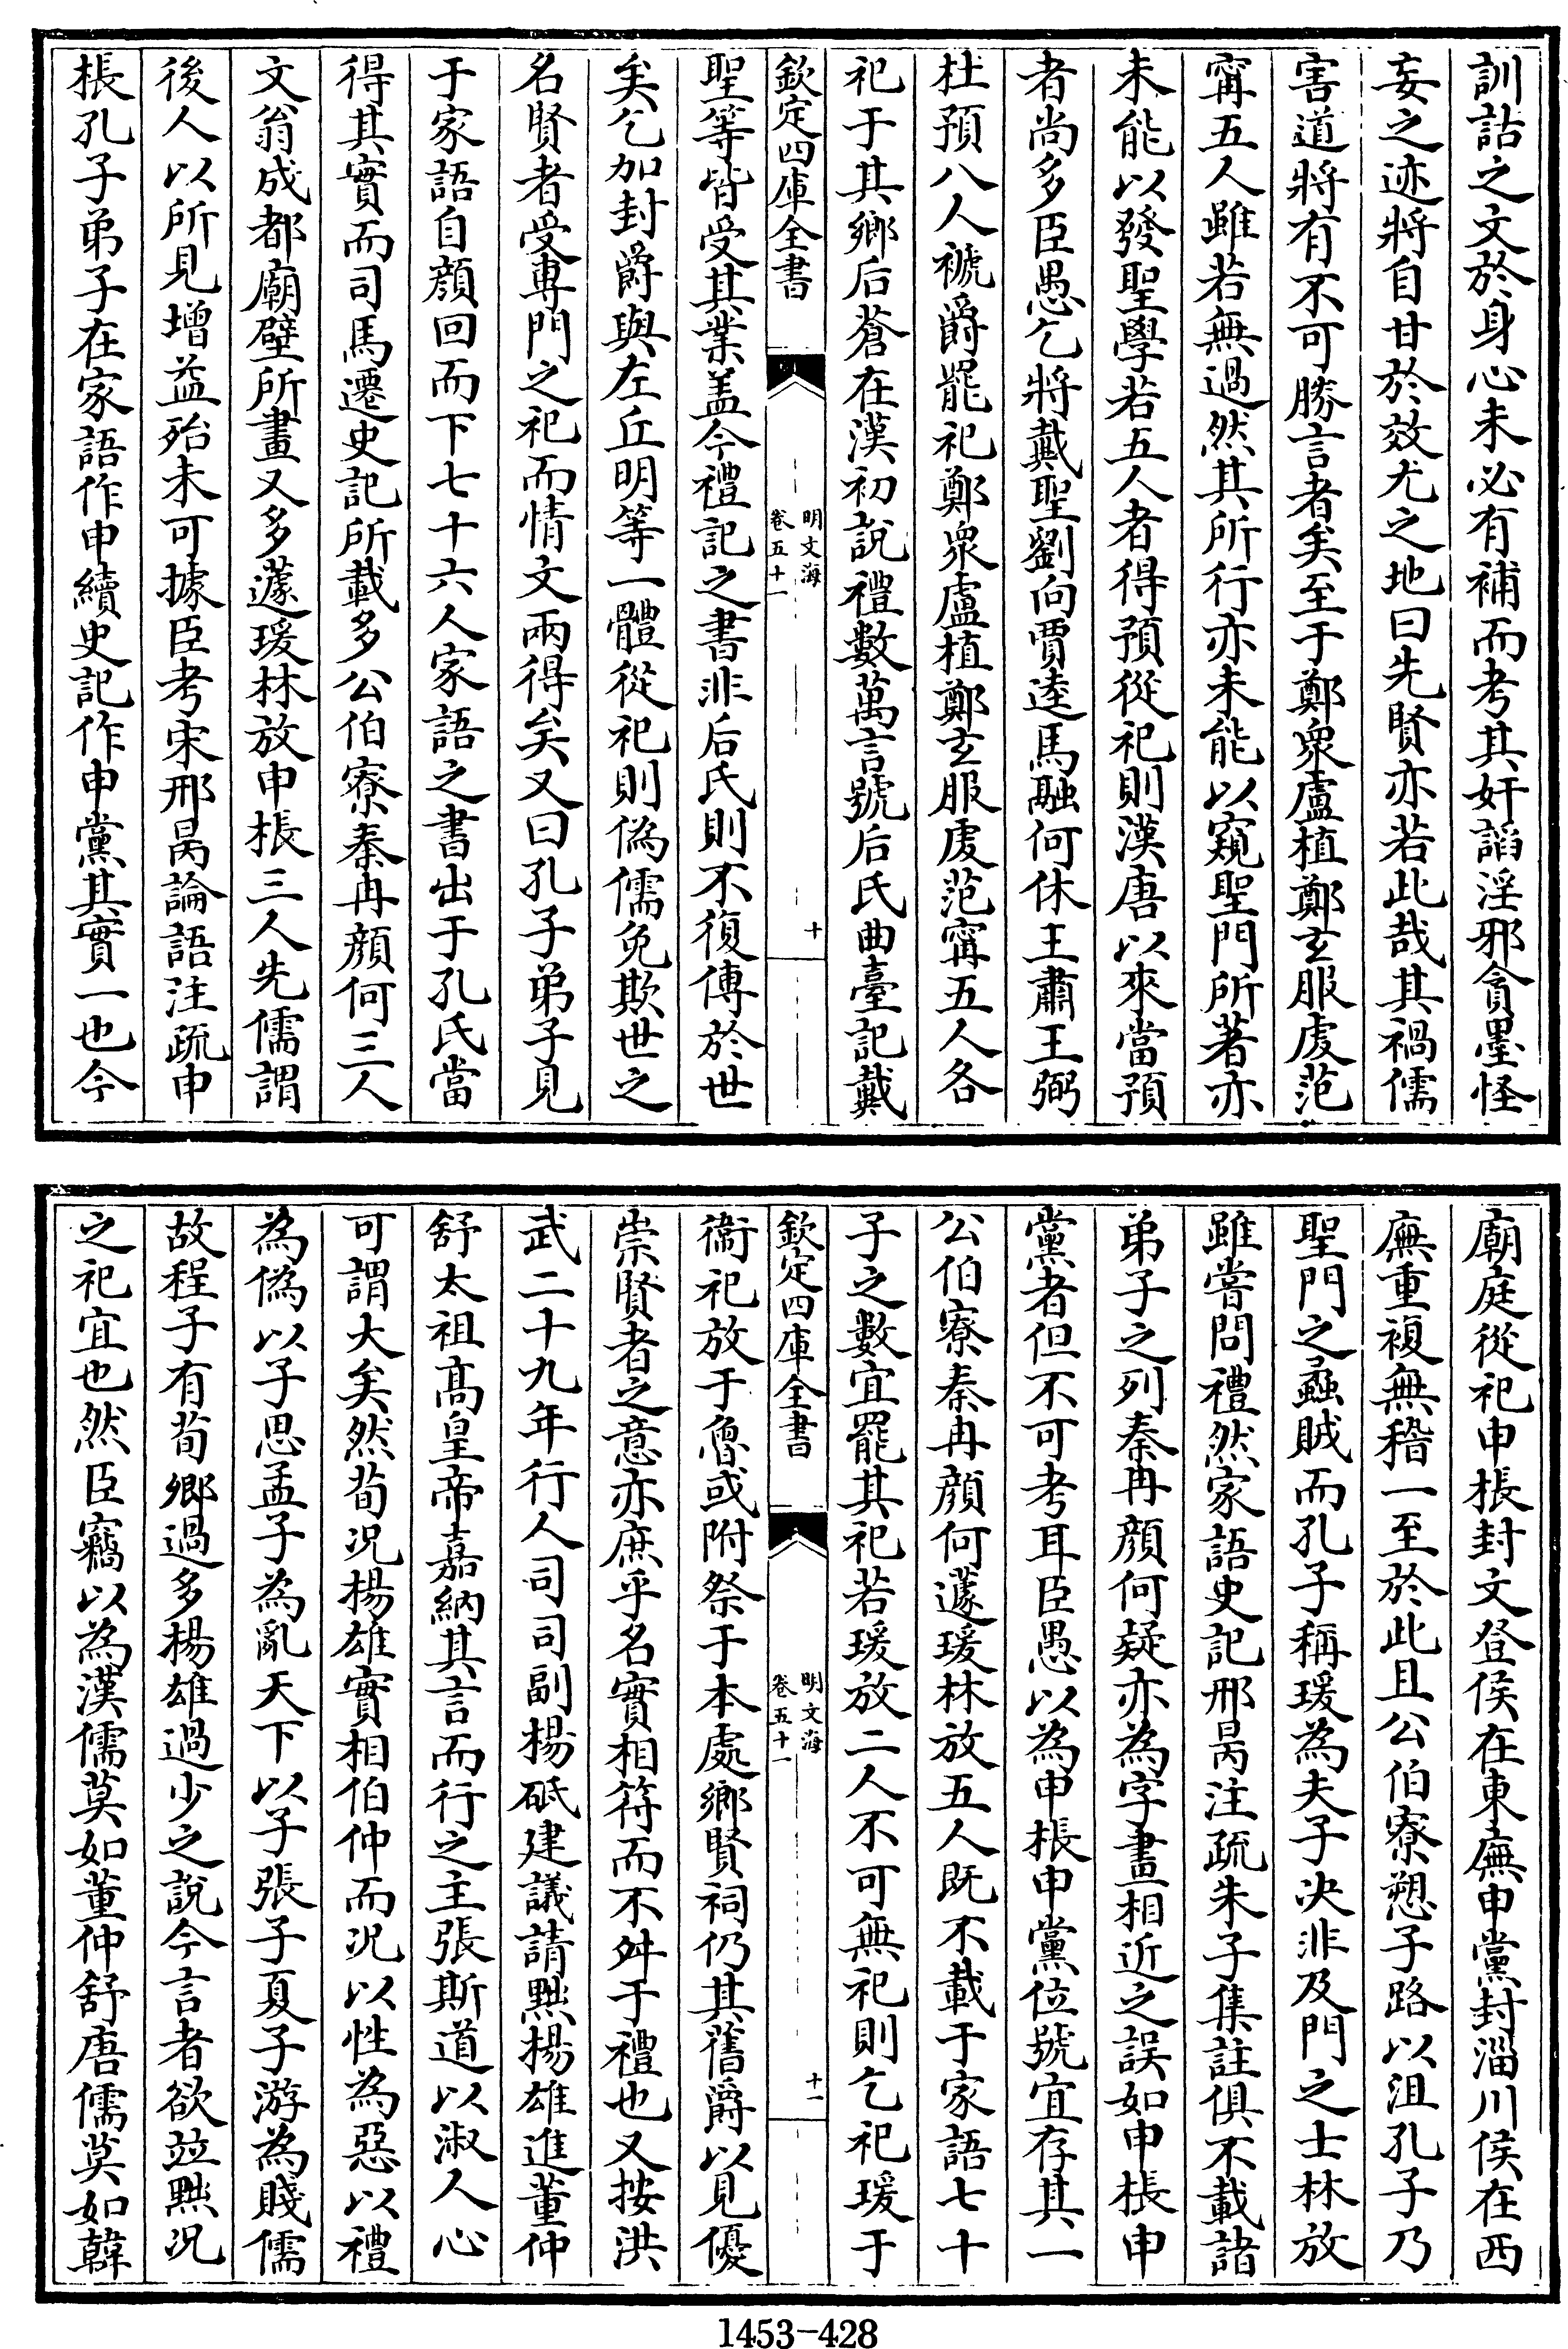 訓詁之文於身心未必有補而考其奸諂淫邪貪墨怪
妄之迹將自甘於效尤之地曰先賢亦若此哉其禍儒
害道將有不可勝言者矣至于鄭衆盧植鄭玄服虔范
寗五人雖若無過然其所行亦未能以窺聖門所著亦
未能以發聖學若五人者得預從祀則漢唐以來當預
者尚多臣愚乞將戴聖劉向賈逵馬融何休王肅王弼
杜預八人褫爵罷祀鄭衆盧植鄭玄服虔范寗五人各
祀于其鄉后蒼在漢初說禮數萬言號后氏曲臺記戴
欽定四庫全書
明文海
卷五十一
十
聖等皆受其業盖今禮記之書非后氏則不復傳於世
矣乞加封爵與左丘明等一體從祀則偽儒免欺世之
名賢者受專門之祀而情文兩得矣又曰孔子弟子見
于家語自顔回而下七十六人家語之書出于孔氏當
得其實而司馬遷史記所載多公伯寮秦冉顔何三人
文翁成都廟壁所畫又多蘧瑗林放申棖三人先儒謂
後人以所見增益殆未可據臣考宋邢昺論語注疏申
棖孔子弟子在家語作申續史記作申黨其實一也今
廟庭從祀申棖封文登侯在東廡申黨封淄川侯在西
廡重複無稽一至於此且公伯寮愬子路以沮孔子乃
聖門之蟊賊而孔子稱瑗為夫子决非及門之士林放
雖嘗問禮然家語史記邢昺注疏朱子集註俱不載諸
弟子之列秦冉顔何疑亦為字畫相近之誤如申棖申
黨者但不可考耳臣愚以為申棖申黨位號宜存其一
公伯寮秦冉顔何蘧瑗林放五人既不載于家語七十
子之數宜罷其祀若瑗放二人不可無祀則乞祀瑗于
欽定四庫全書
明文海
卷五十一
十一
衞祀放于魯或附祭于本處鄉賢祠仍其舊爵以見優
崇賢者之意亦庶乎名實相符而不舛于禮也又按洪
武二十九年行人司司副楊砥建議請黜楊雄進董仲
舒太祖髙皇帝嘉納其言而行之主張斯道以淑人心
可謂大矣然荀况楊雄實相伯仲而况以性為惡以禮
為偽以子思孟子為亂天下以子張子夏子游為賤儒
故程子有荀卿過多楊雄過少之說今言者欲竝黜况
之祀宜也然臣竊以為漢儒莫如董仲舒唐儒莫如韓
1453-428